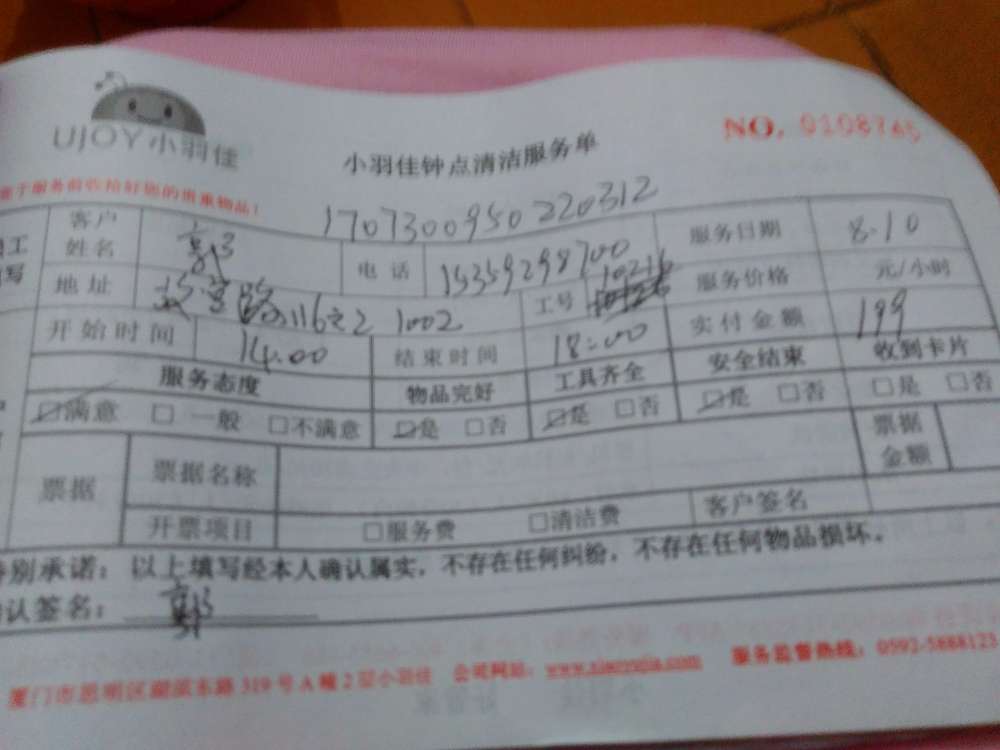 UJOY小羽佳
小羽佳钟点清洁服务单
NO. 0108765
于服务前收拾好您的贵重物品!
1707300950220312
客户姓名 郭 电话 15359298700 服务日期 8.10
地址 路116之2 1002 工号 10216 服务价格 元/小时
开始时间 14.00 结束时间 18:00 实付金额 199
服务态度 物品完好 工具齐全 安全结束 收到卡片
☑满意 □一般 □不满意 ☑是 □否 ☑是 □否 ☑是 □否 □是 □否
票据 票据名称 票据金额
开票项目 □服务费 □清洁费 客户签名
特别承诺: 以上填写经本人确认属实,不存在任何纠纷,不存在任何物品损坏。
确认签名: 郭
厦门市思明区湖滨东路319号A幢2层小羽佳 公司网站: www.xiaoyujia.com 服务监督热线: 0592-5888123